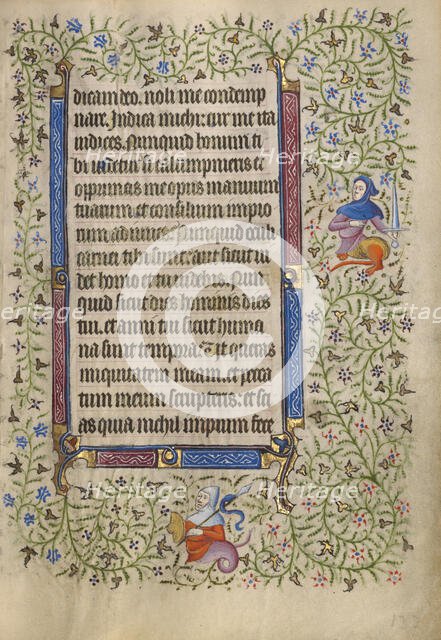 dicam deo. noli me condemp
nare. Indica michi: cur me ita
iudices. Nunquid bonum ti
bi uidetur si calumpnieris et
opprimas me opus manuum
tuarum et consilium impio
rum adiuues. Nunquid oculi
carnei tibi sunt: aut sicut ui
det homo et tu uidebis. Nun
quid sicut dies hominis dies
tui. et anni tui sicut huma
na sunt tempora. Ut queras
iniquitatem meam. et pecca
tum meum scruteris: et sci
as quia nichil impium fece
Heritage
Images